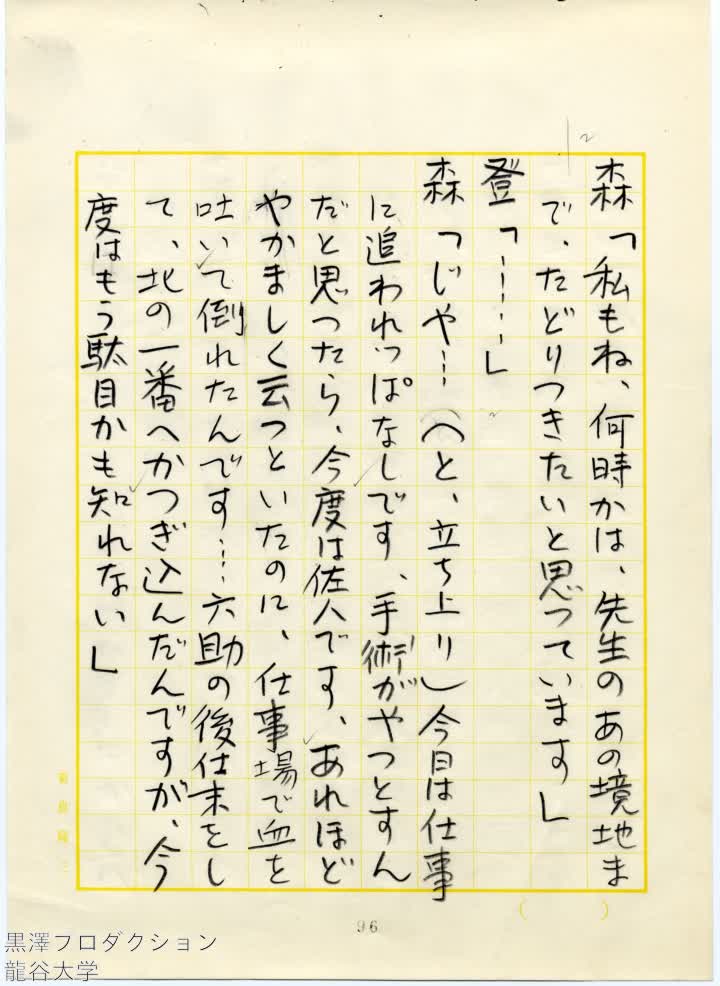 森「私もね、何時かは、先生のあの境地ま
で、たどりつきたいと思つています」
登「…………」
森「じや… (へと、立ち上り) 今日は仕事
に追われっぱなしです、手術がやつとすん
だと思つたら、今度は佐八です、あれほど
やかましく云つといたのに、仕事場で血を
吐いて倒れたんです…六助の後仕末をし
て、北の一番へかつぎ込んだんですが、今
度はもう駄目かも知れない」
96
黒澤プロダクション
龍谷大学